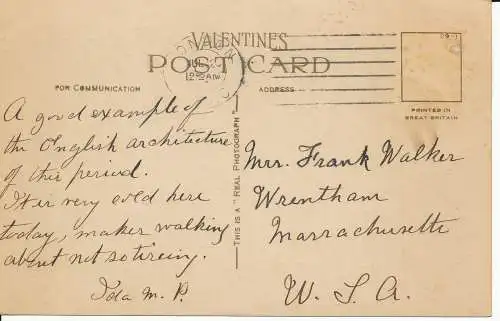 VALENTINES
POST CARD
LONDON
JUL
12 AM
FOR COMMUNICATION
ADDRESS
PRINTED IN
GREAT BRITAIN
THIS IS A "REAL PHOTOGRAPH"
A good example of
the English architecture
of this period.
It is very cold here
today, makes walking
about not so tireing.
Ida M. P.
Mrs. Frank Walker
Wrentham
Massachusetts
U. S. A.